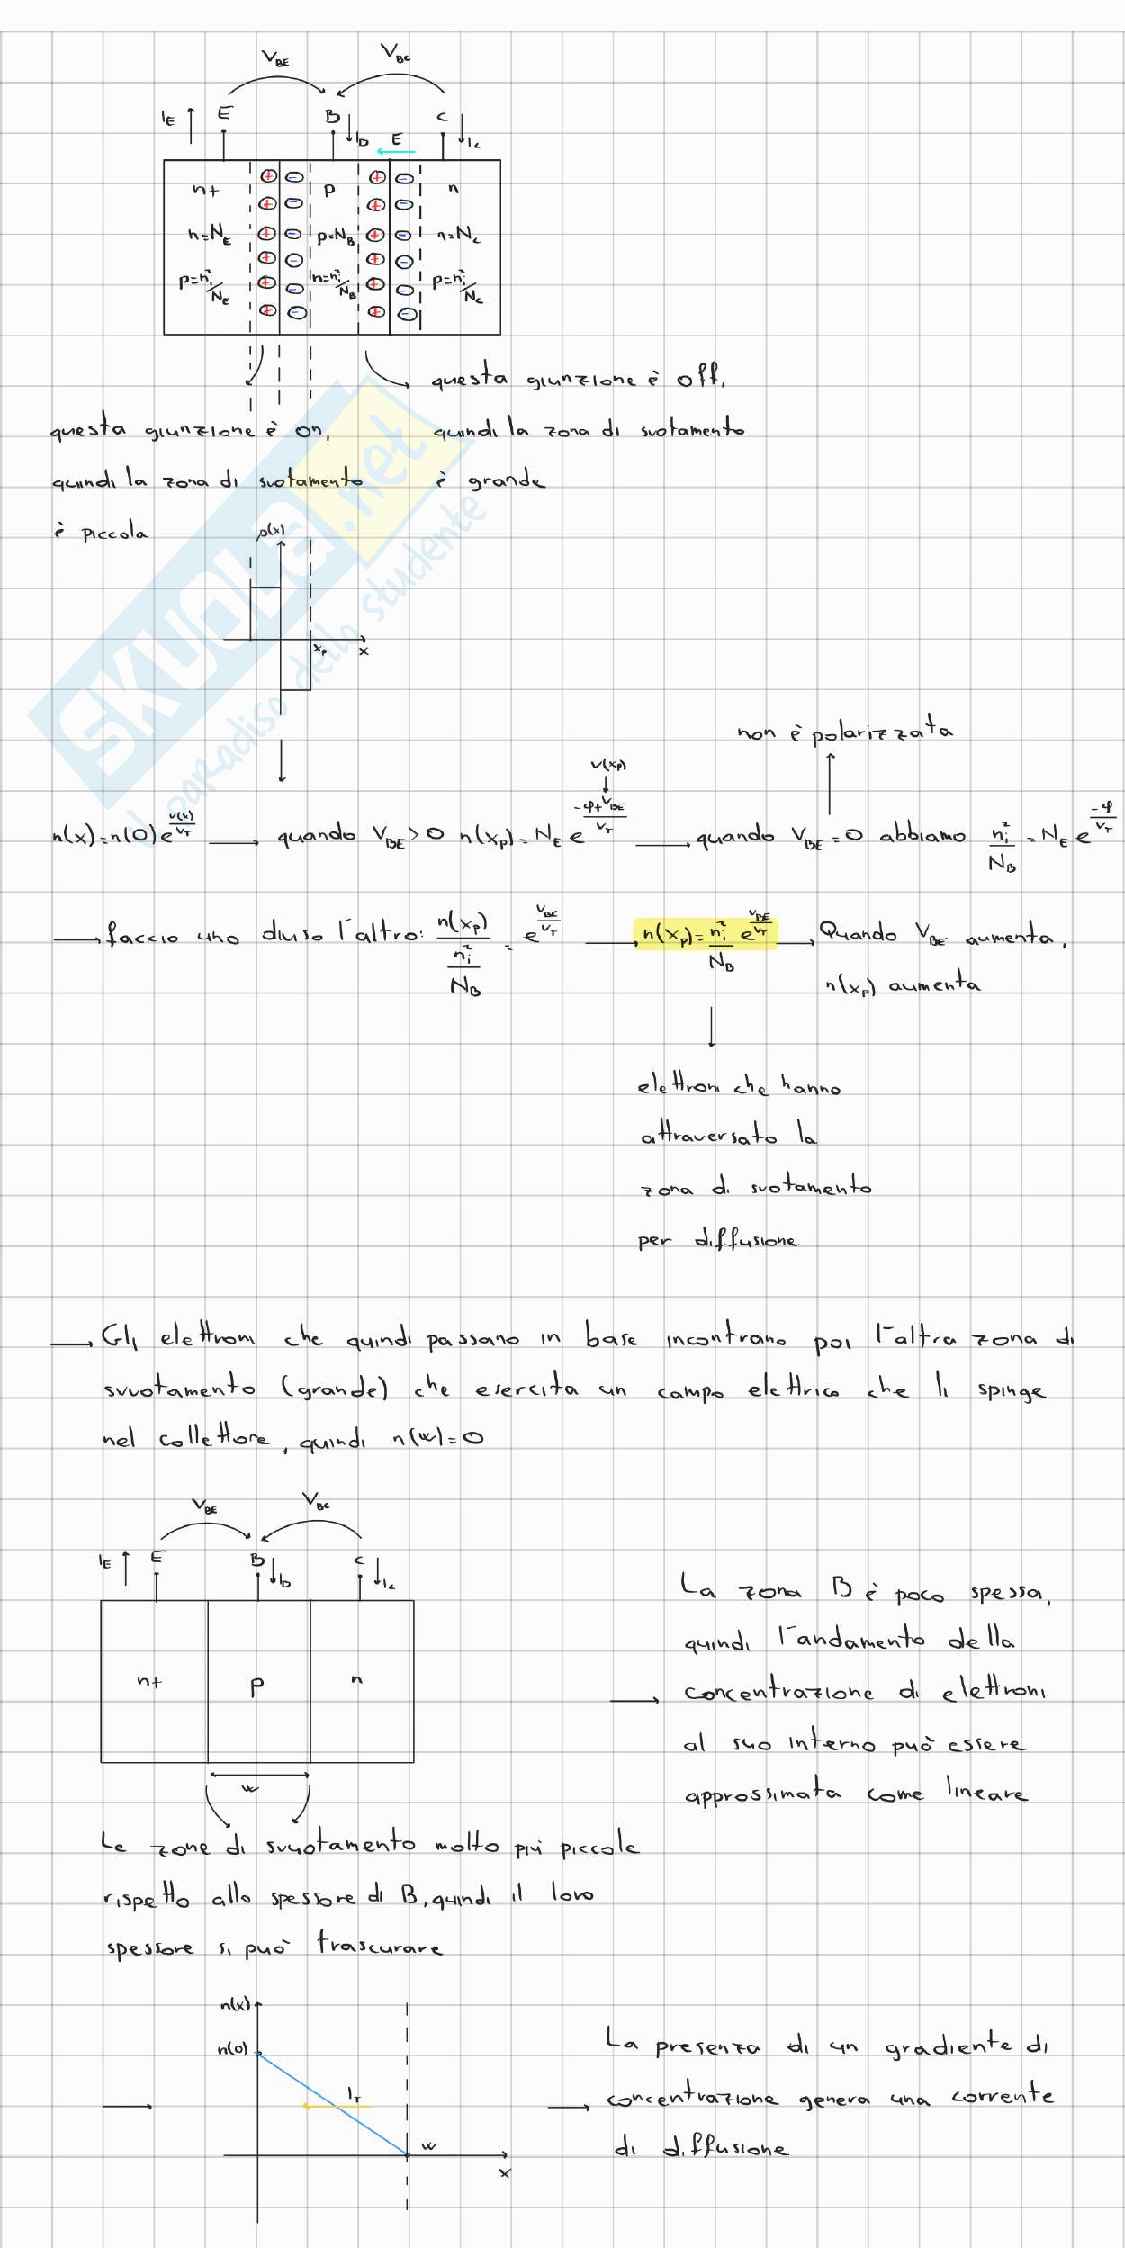 V_BE V_BC
I_E E B I_B E C I_C
n+ p n
n=N_E p=N_B n=N_C
p=n_i²/N_E n=n_i²/N_B p=n_i²/N_C
questa giunzione è off,
questa giunzione è on, quindi la zona di svotamento
quindi la zona di svotamento è grande
è piccola
ρ(x)
x_p x
SKUOLA.net
il paradiso dello studente
non è polarizzata
V(x_p)
n(x)=n(0)e^(V(x)/V_T) → quando V_BE>0 n(x_p)=N_E e^((-φ+V_BE)/V_T) → quando V_BE=0 abbiamo n_i²/N_B = N_E e^(-φ/V_T)
→ faccio uno diviso l'altro: n(x_p)/(n_i²/N_B) = e^(V_BE/V_T) → n(x_p)=n_i²/N_B e^(V_BE/V_T) → Quando V_BE aumenta,
n(x_p) aumenta
elettroni che hanno
attraversato la
zona di svotamento
per diffusione
→ Gli elettroni che quindi passano in base incontrano poi l'altra zona di
svuotamento (grande) che esercita un campo elettrico che li spinge
nel collettore, quindi n(w)=0
V_BE V_BC
I_E E B I_B C I_C
n+ p n
w
La zona B è poco spessa,
quindi l'andamento della
→ concentrazione di elettroni
al suo interno può essere
approssimata come lineare
Le zone di svuotamento molto più piccole
rispetto allo spessore di B, quindi il loro
spessore si può trascurare
n(x)
n(0)
I_T
w
x
La presenza di un gradiente di
→ concentrazione genera una corrente
di diffusione